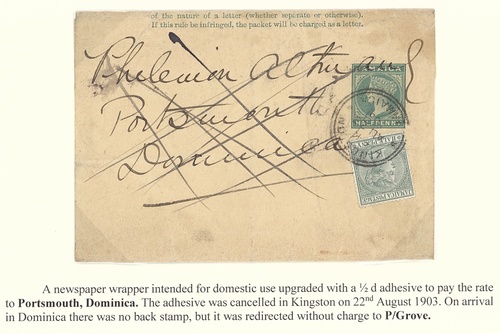 of the nature of a letter (whether separate or otherwise).
If this rule be infringed, the packet will be charged as a letter.
Philemon
Portsmouth
Dominica
HALFPENNY
A newspaper wrapper intended for domestic use upgraded with a ½ d adhesive to pay the rate
to Portsmouth, Dominica. The adhesive was cancelled in Kingston on 22nd August 1903. On arrival
in Dominica there was no back stamp, but it was redirected without charge to P/Grove.